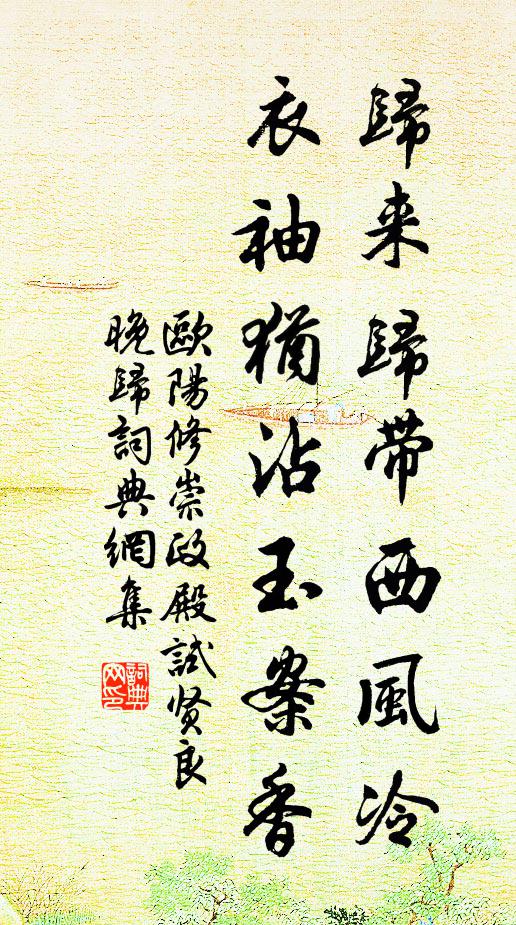 歸来歸带西風冷
衣袖猶沾玉案香
歐陽修崇政殿試贤良
晚歸詞典網集
詞典網印